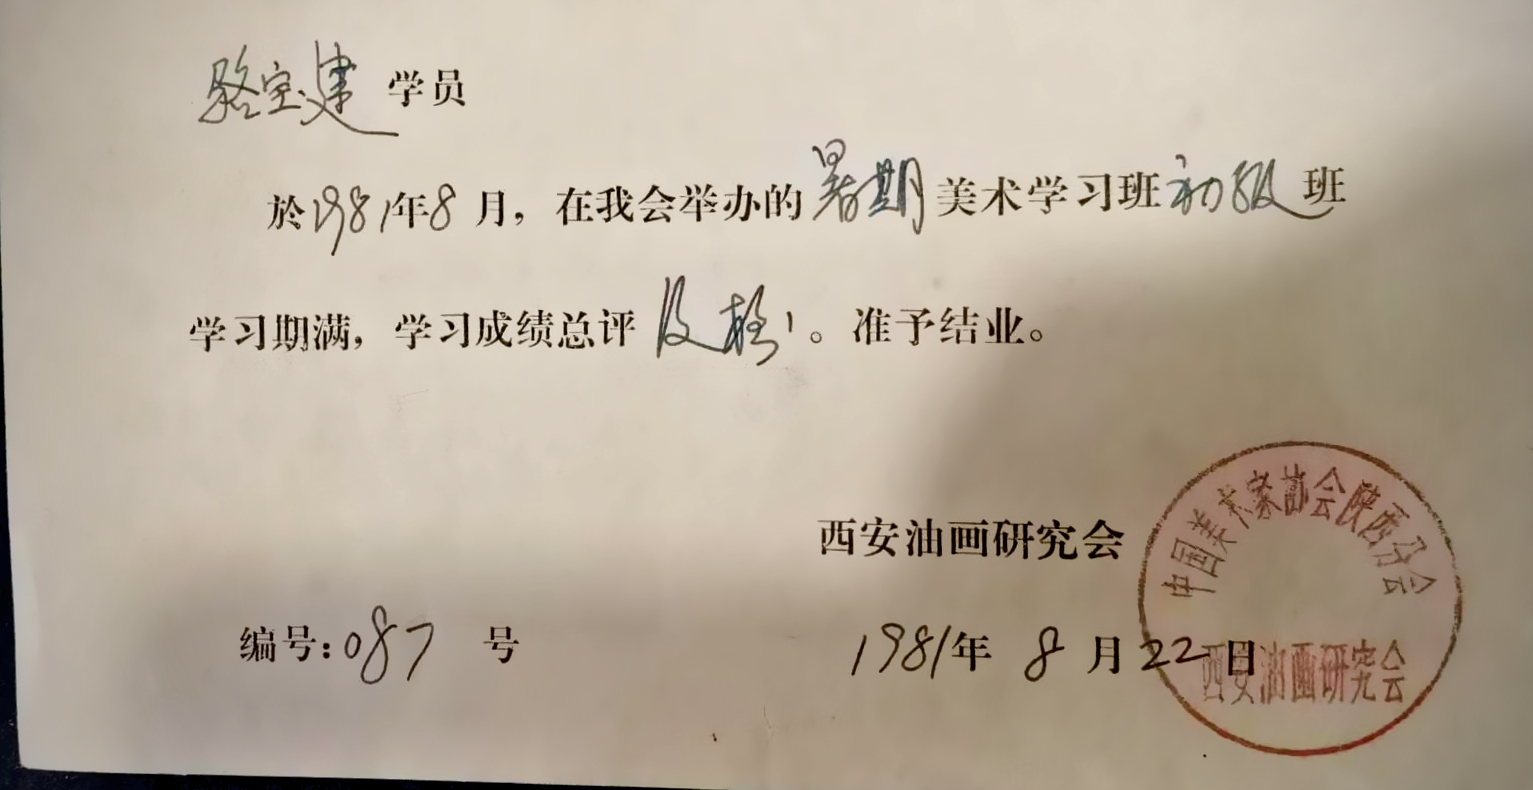 骆宝建 学员
於1981年8月，在我会举办的暑期美术学习班初级班
学习期满，学习成绩总评及格。准予结业。
西安油画研究会
编号:087 号
1981年 8月22日
中国美术家协会陕西分会
西安油画研究会